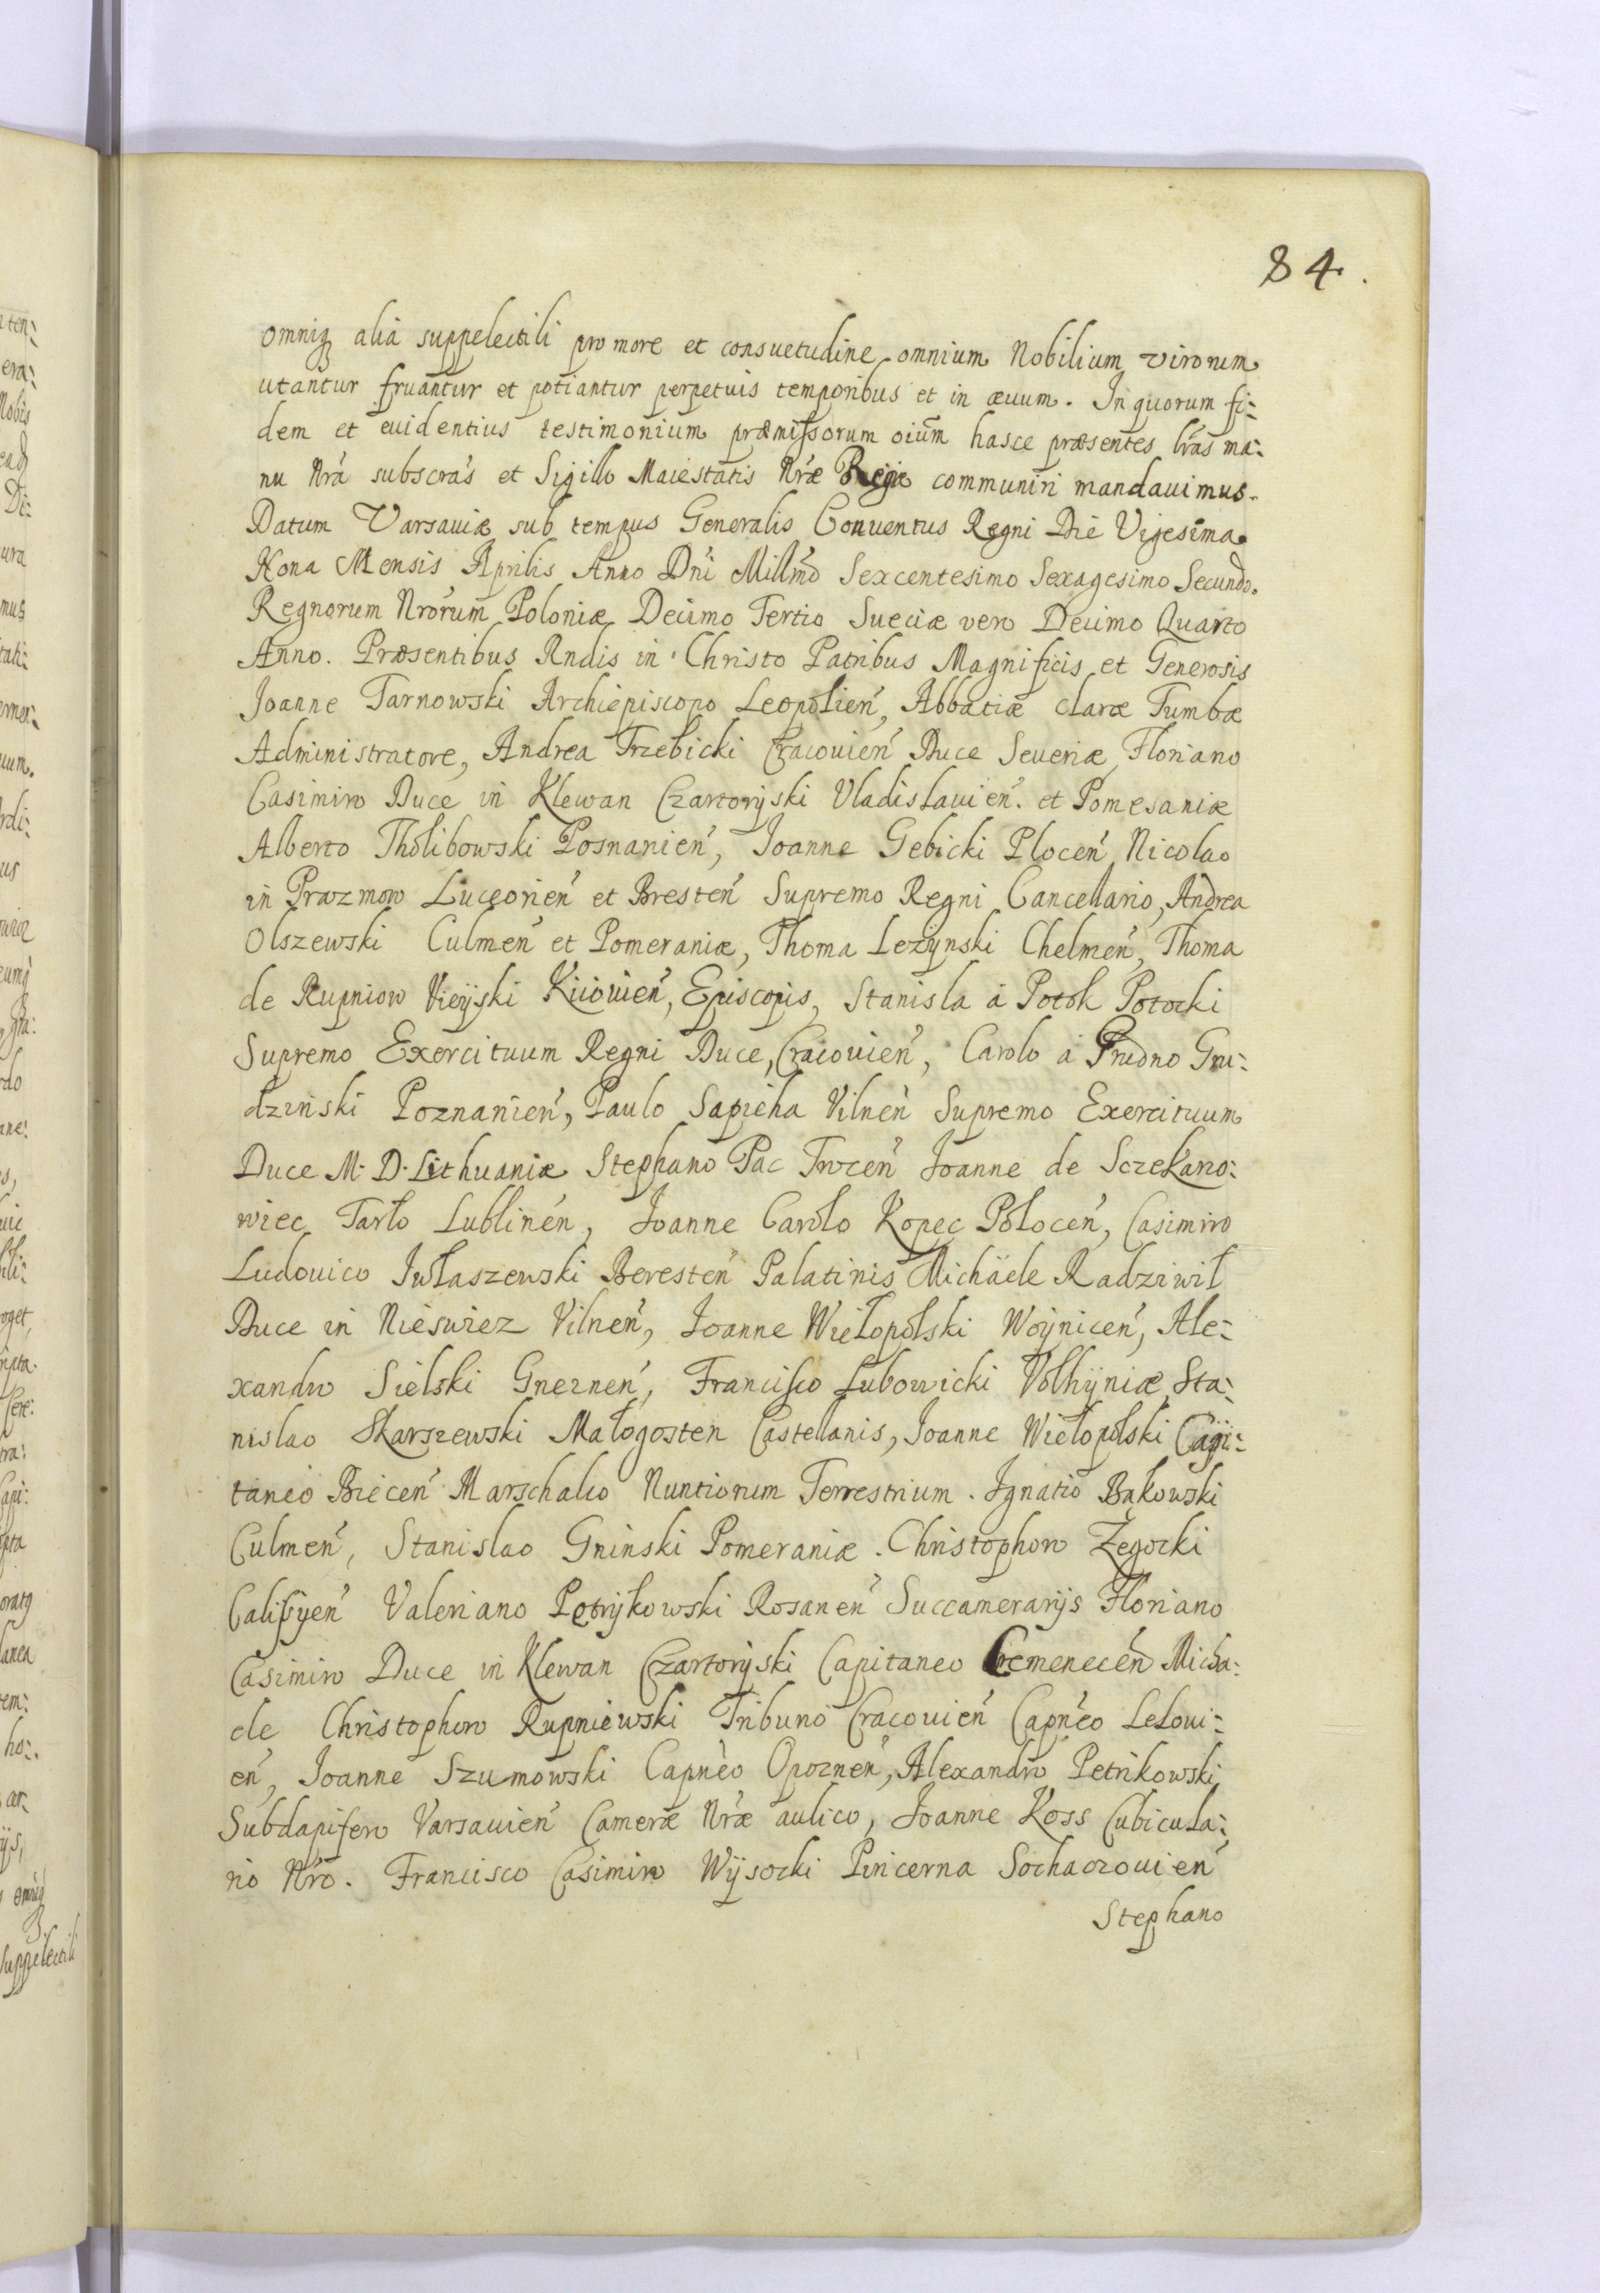 84.
omniq alia suppelectili pro more et consuetudine omnium Nobilium virorum
utantur fruantur et potiantur perpetuis temporibus et in æuum. In quorum fi:
dem et euidentius testimonium præmissorum oium hasce præsentes lras ma:
nu Nra subscras et Sigillo Maiestatis Nræ Regiæ communiri mandauimus.
Datum Varsauiæ sub tempus Generalis Conuentus Regni Die Vigesima
Nona Mensis Aprilis Anno Dni Millmo Sexcentesimo Sexagesimo Secundo.
Regnorum Nrorum Poloniæ Decimo Tertio Sueciæ vero Decimo Quarto
Anno. Præsentibus Rndis in Christo Patribus Magnificis et Generosis
Joanne Tarnowski Archiepiscopo Leopolien, Abbatiæ claræ Tumbæ
Administratore, Andrea Trzebicki Cracouien Duce Seueriæ, Floriano
Casimiro Duce in Klewan Czartoryski Vladislauien. et Pomesaniæ
Alberto Tholibowski Posnanien, Joanne Gebicki Plocen, Nicolao
in Prazmow Luceorien et Bresten Supremo Regni Cancellario, Andrea
Olszewski Culmen et Pomeraniæ, Thoma Lezynski Chelmen, Thoma
de Rupniow Vieyski Kiiouien, Episcopis, Stanisla á Potok Potocki
Supremo Exercituum Regni Duce, Cracouien, Carolo á Grudno Gru:
dziński Poznanien, Paulo Sapieha Vilnen Supremo Exercituum
Duce M. D. Lithuaniæ Stephano Pac Trocen Joanne de Sczekano:
wiec Tarło Lublinen, Joanne Carolo Kopec Połocen, Casimiro
Ludouico Iwłaszewski Beresten Palatinis Michäele Radziwił
Duce in Nieswiez Vilnen, Joanne Wielopolski Woynicen, Ale:
xandro Sielski Gneznen, Francisco Lubowicki Volhyniæ, Sta:
nislao Skarszewski Małogosten Castellanis, Joanne Wielopolski Capi:
taneo Biecen Marschalco Nuntiorum Terrestrium. Ignatio Bąkowski
Culmen, Stanislao Gninski Pomeraniæ. Christophoro Żegocki
Calissyen Valeriano Petrykowski Rosanen Succamerarijs Floriano
Casimiro Duce in Klewan Czartoryski Capitaneo Cremenecen Micha:
ele Christophoro Rupniewski Tribuno Cracouien Capneo Lelouí:
en, Joanne Szumowski Capneo Opoznen, Alexandro Petrikowski
Subdapifero Varsauien Cameræ Nræ aulico, Joanne Koss Cubicula:
rio Nro. Francisco Casimiro Wysocki Pincerna Sochaczouien
Stephano